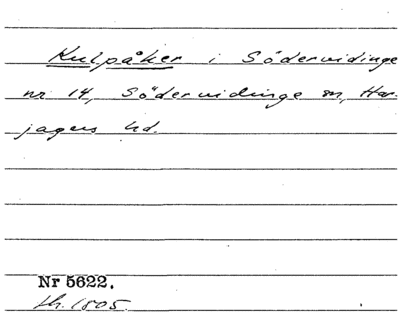 Kulpåker i Södervidinge
nr 14, Södervidinge sn, Har-
jagers hd.
Nr 5622.
sk. 1805.